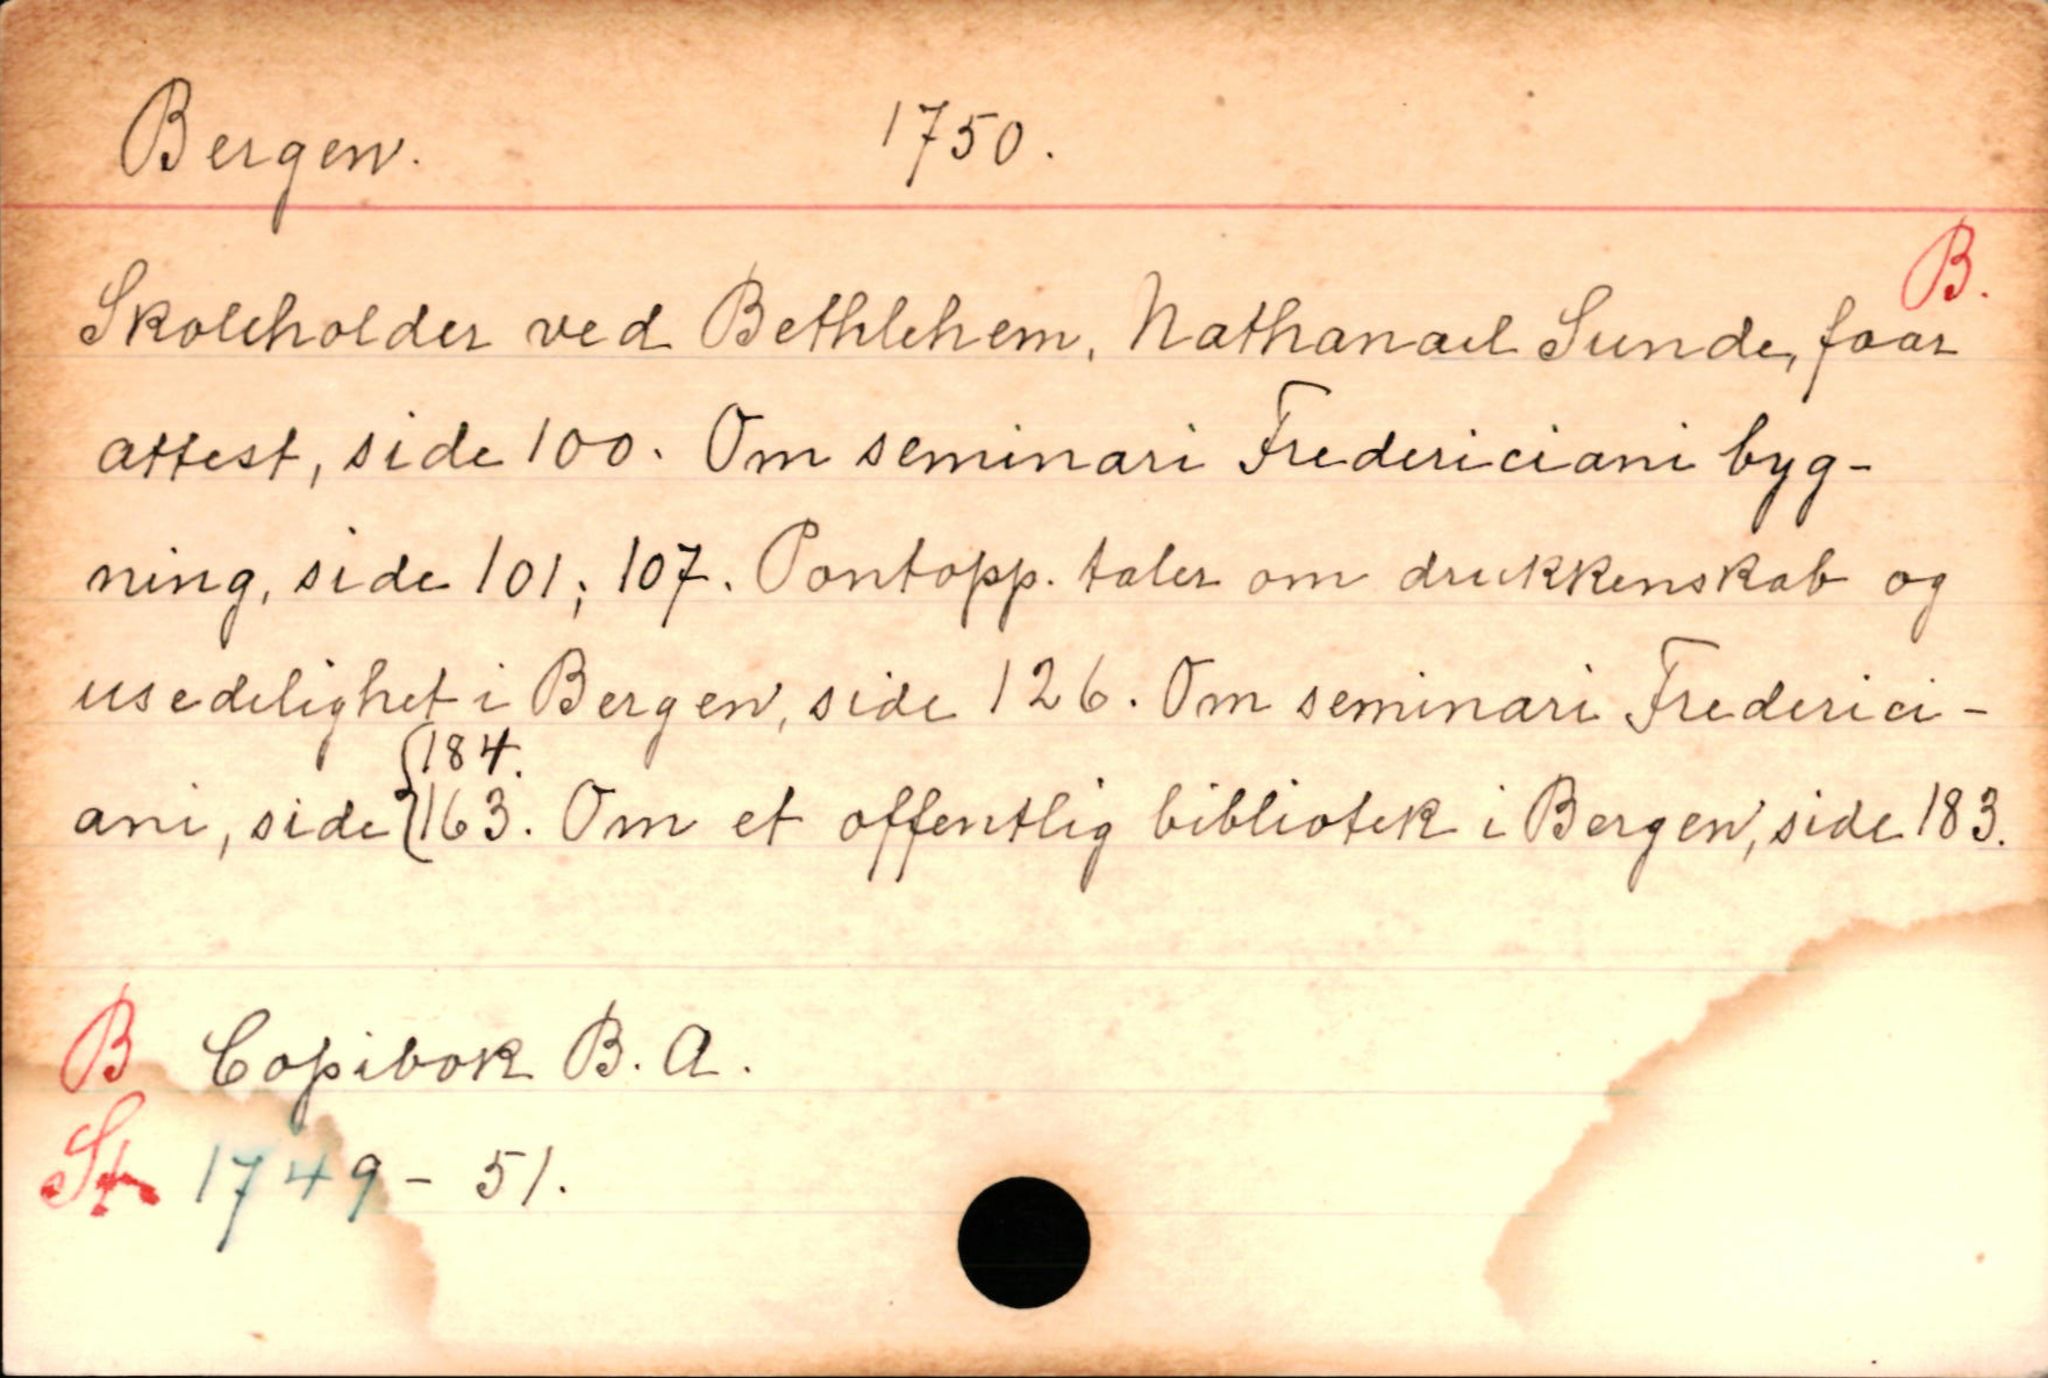 Bergen. 1750.
B.
Skoleholder ved Bethlehem, Nathanael Sunde, faar
attest, side 100. Om seminari Fredericiani byg-
ning, side 101; 107. Pontopp. taler om drukkenskab og
usedelighet i Bergen, side 126. Om seminari Frederici-
184.
ani, side 163. Om et offentlig bibliotek i Bergen, side 183.
B Copibok B. A.
St 1749 - 51.